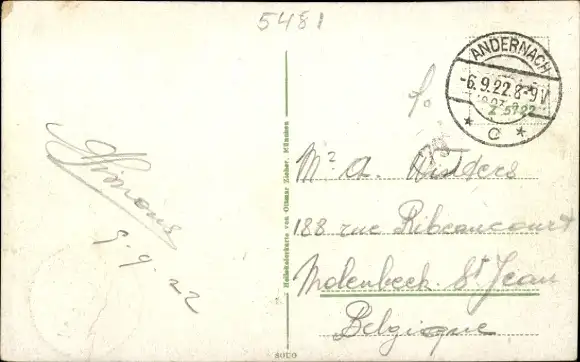 5481
ANDERNACH
-6.9.22.8-9V
* c *
Z 5722
Simons
5.9.22
Mr A. Winders
188 rue Ribeaucourt
Molenbeek St Jean
Belgique
Heliokolorkarte von Ottmar Zieher, München